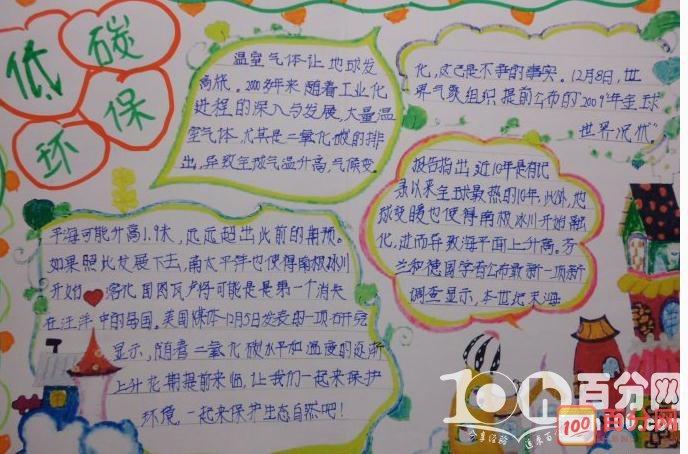 低碳
环保
温室气体让地球发
高烧。200多年来随着工业化
进程的深入与发展,大量温
室气体,尤其是二氧化碳的排
出,导致全球气温升高,气候变
化,这已是不争的事实。12月8日,世
界气象组织提前公布的"2009年全球
世界况忧"
报告指出,近10年是有记
录以来全球最热的10年,此外,地
球变暖也使得南极冰川开始融
化,进而导致海平面上升高。芬
兰和德国学者公布最新一项新
调查显示,本世纪末海
平海可能升高1.9米,远远超出此前的期预。
如果照此发展下去,南太平洋也使得南极冰川
开始 溶化国图瓦卢将可能是是第一个消失
在汪洋中的岛国,美国媒体12月5日发表的一项石研究
显示,随着二氧化碳水平和温度的逐渐
上升花期提前来临,让我们一起来保护
环境,一起来保护生态自然吧!
100百分网
100百分网